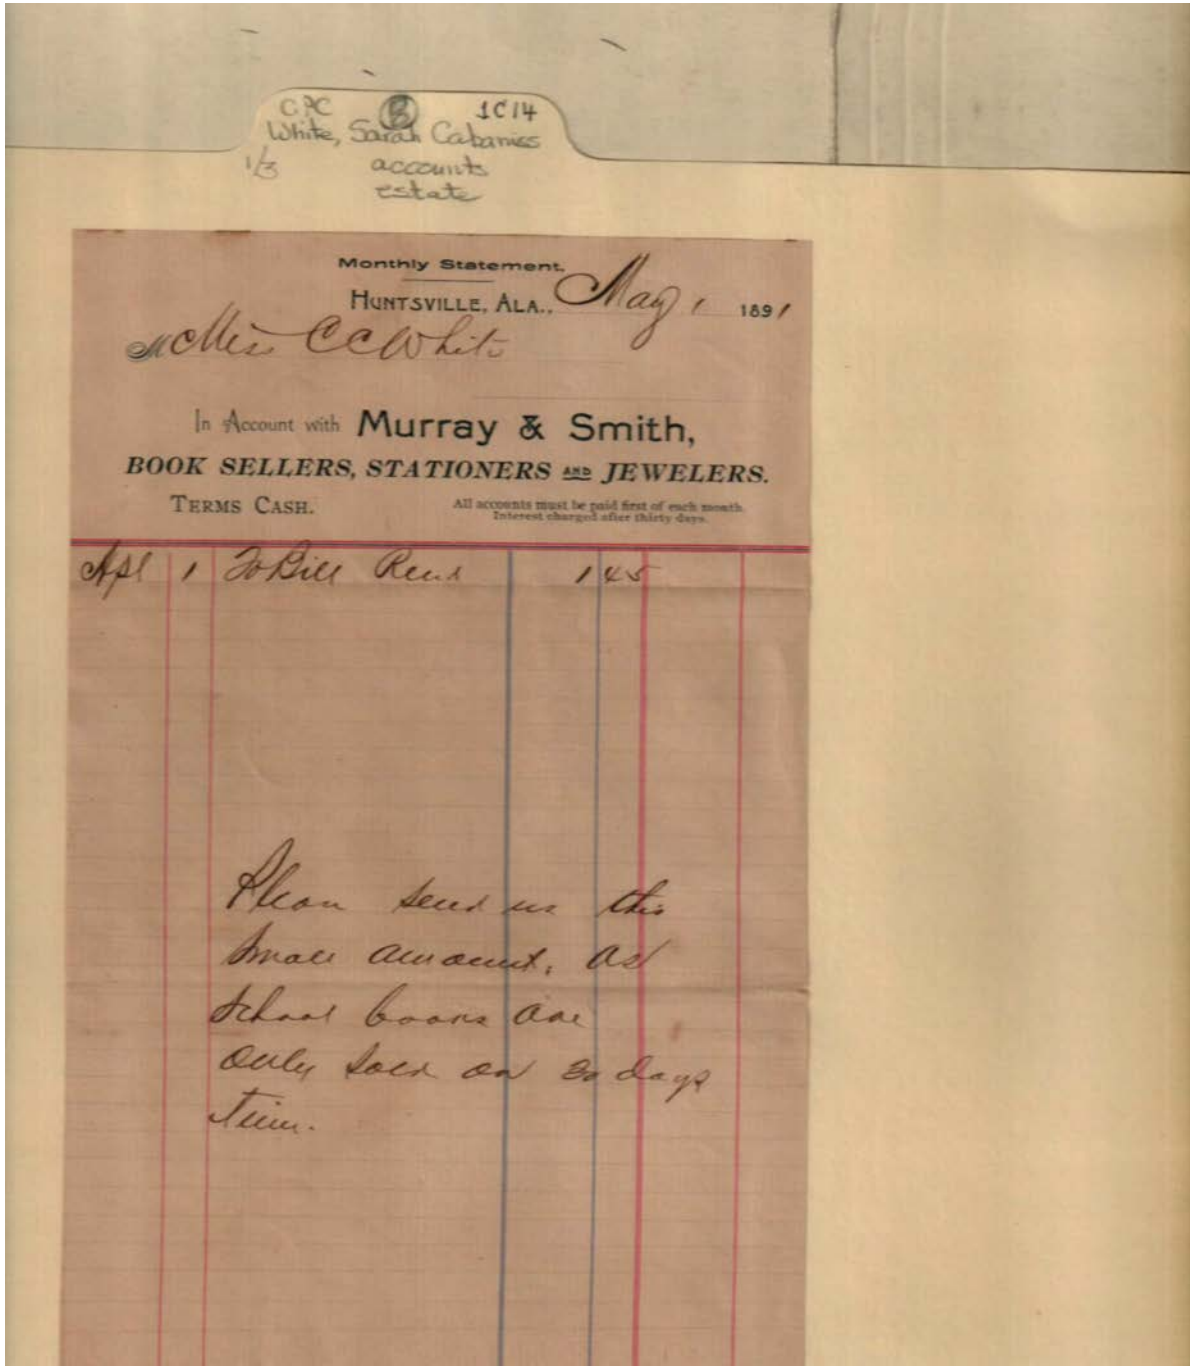 CPC B 1C14
White, Sarah Cabaniss
1/3 accounts
estate
Monthly Statement.
HUNTSVILLE, ALA., May 1 1891
M Miss C C White
In Account with Murray & Smith,
BOOK SELLERS, STATIONERS AND JEWELERS.
TERMS CASH. All accounts must be paid first of each month.
Interest charged after thirty days.
Apl 1 To Bill Rend 1 45
Please send us this
small amount, as
school books are
only sold on 30 days
time.